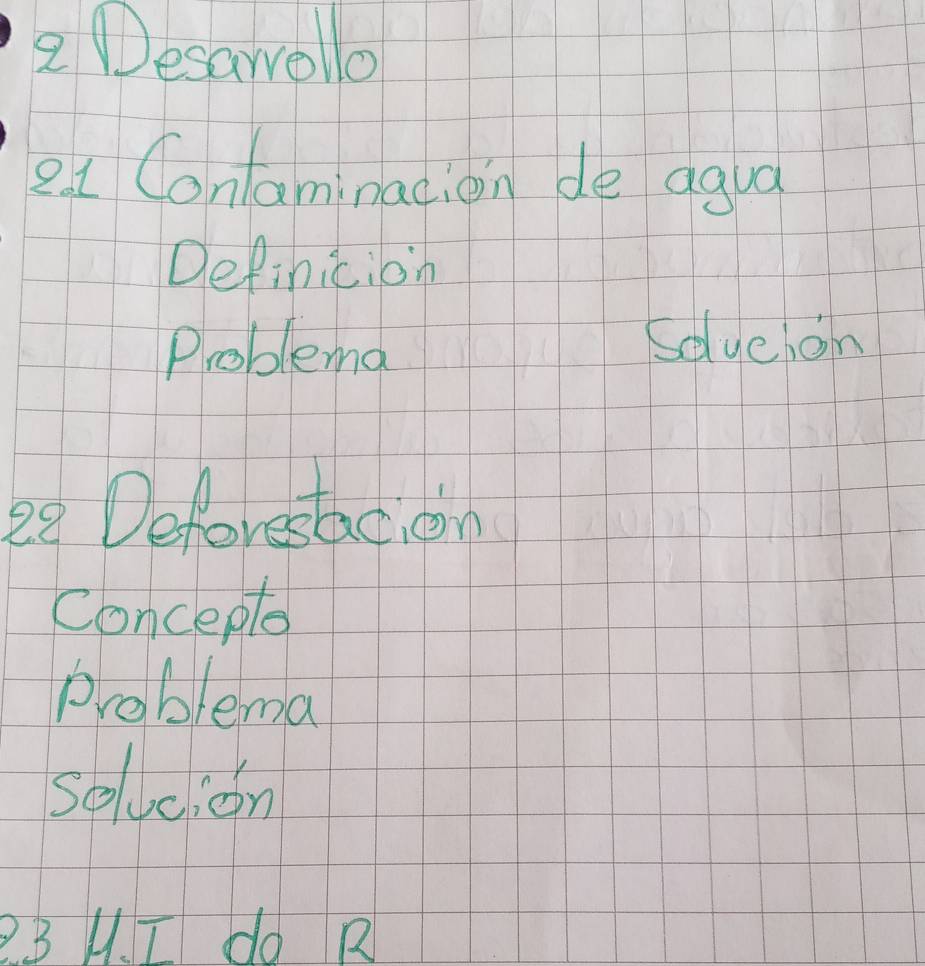 2 Desarrollo
2.1 Contaminación de agua
Definición
Problema Solución
2.2 Deforestación
Concepto
Problema
solución
2.3 M.I do R